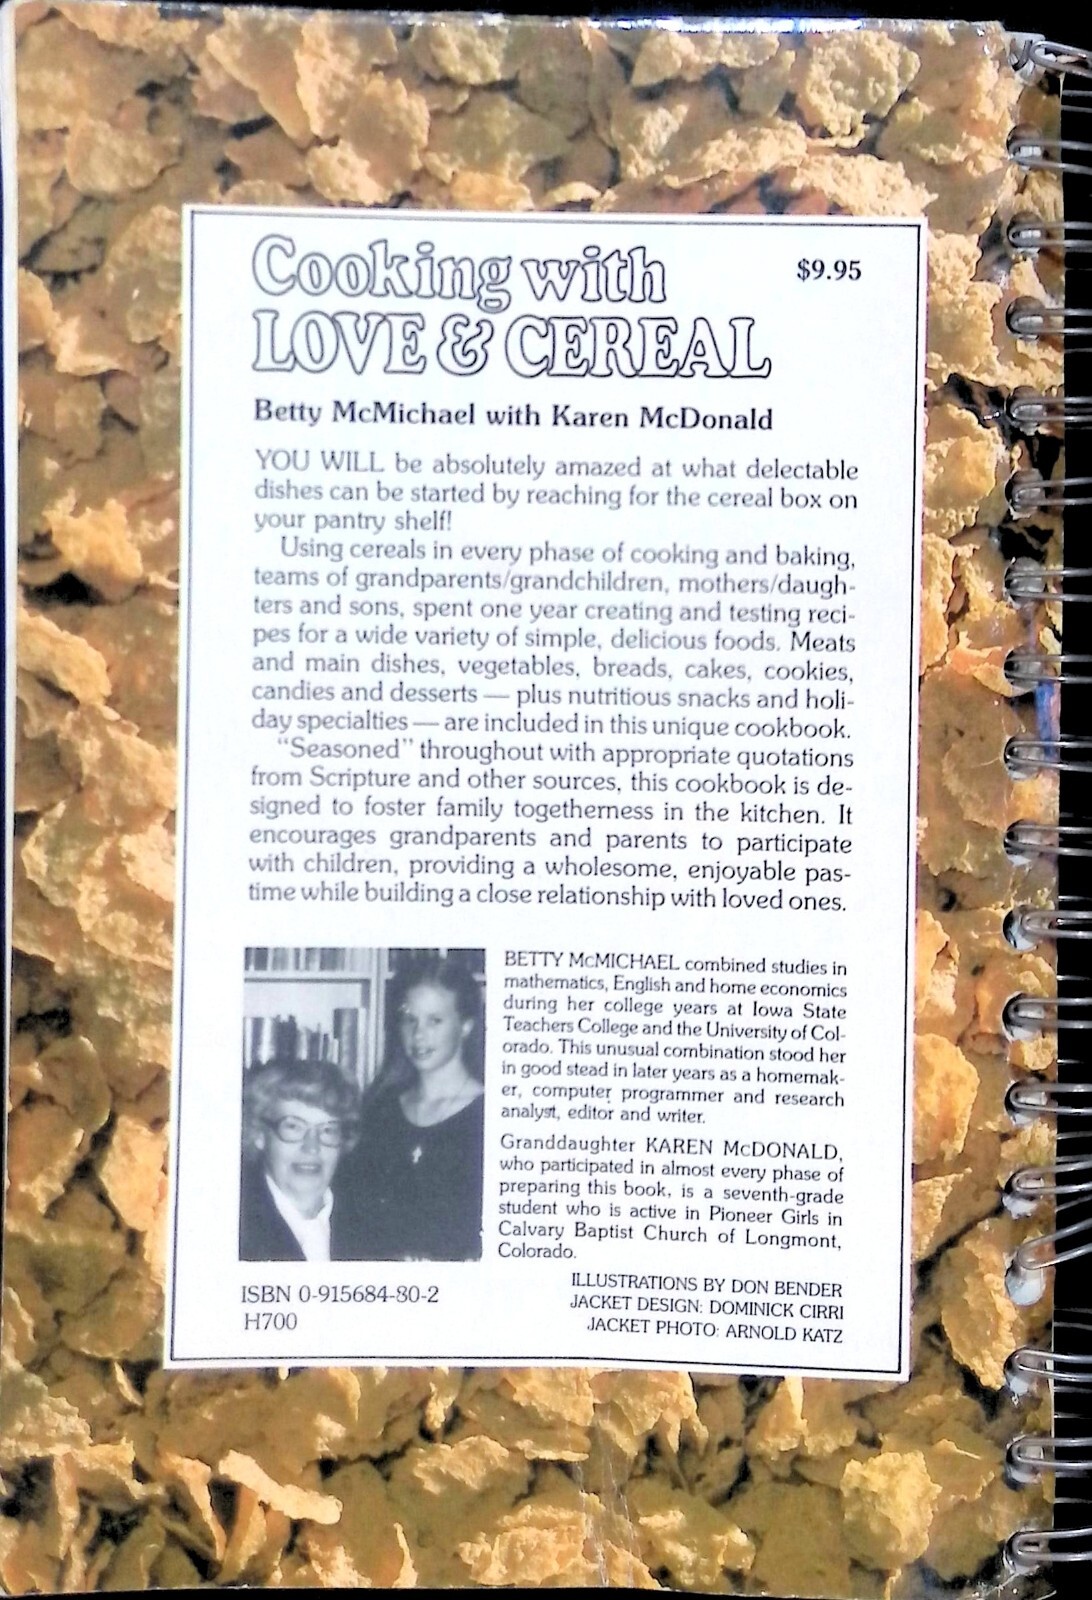 Cooking with
$9.95
LOVE & CEREAL
Betty McMichael with Karen McDonald
YOU WILL be absolutely amazed at what delectable
dishes can be started by reaching for the cereal box on
your pantry shelf!
Using cereals in every phase of cooking and baking,
teams of grandparents/grandchildren, mothers/daugh-
ters and sons, spent one year creating and testing reci-
pes for a wide variety of simple, delicious foods. Meats
and main dishes, vegetables, breads, cakes, cookies,
candies and desserts — plus nutritious snacks and holi-
day specialties — are included in this unique cookbook.
“Seasoned” throughout with appropriate quotations
from Scripture and other sources, this cookbook is de-
signed to foster family togetherness in the kitchen. It
encourages grandparents and parents to participate
with children, providing a wholesome, enjoyable pas-
time while building a close relationship with loved ones.
BETTY McMICHAEL combined studies in
mathematics, English and home economics
during her college years at Iowa State
Teachers College and the University of Col-
orado. This unusual combination stood her
in good stead in later years as a homemak-
er, computer programmer and research
analyst, editor and writer.
Granddaughter KAREN McDONALD,
who participated in almost every phase of
preparing this book, is a seventh-grade
student who is active in Pioneer Girls in
Calvary Baptist Church of Longmont,
Colorado.
ISBN 0-915684-80-2
H700
ILLUSTRATIONS BY DON BENDER
JACKET DESIGN: DOMINICK CIRRI
JACKET PHOTO: ARNOLD KATZ